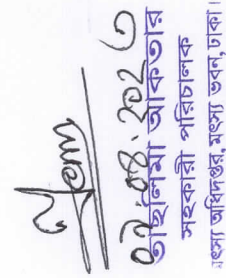 ০৯.০৪.২০২৩
তাছলিমা আকতার
সহকারী পরিচালক
মৎস্য অধিদপ্তর, মৎস্য ভবন, ঢাকা।